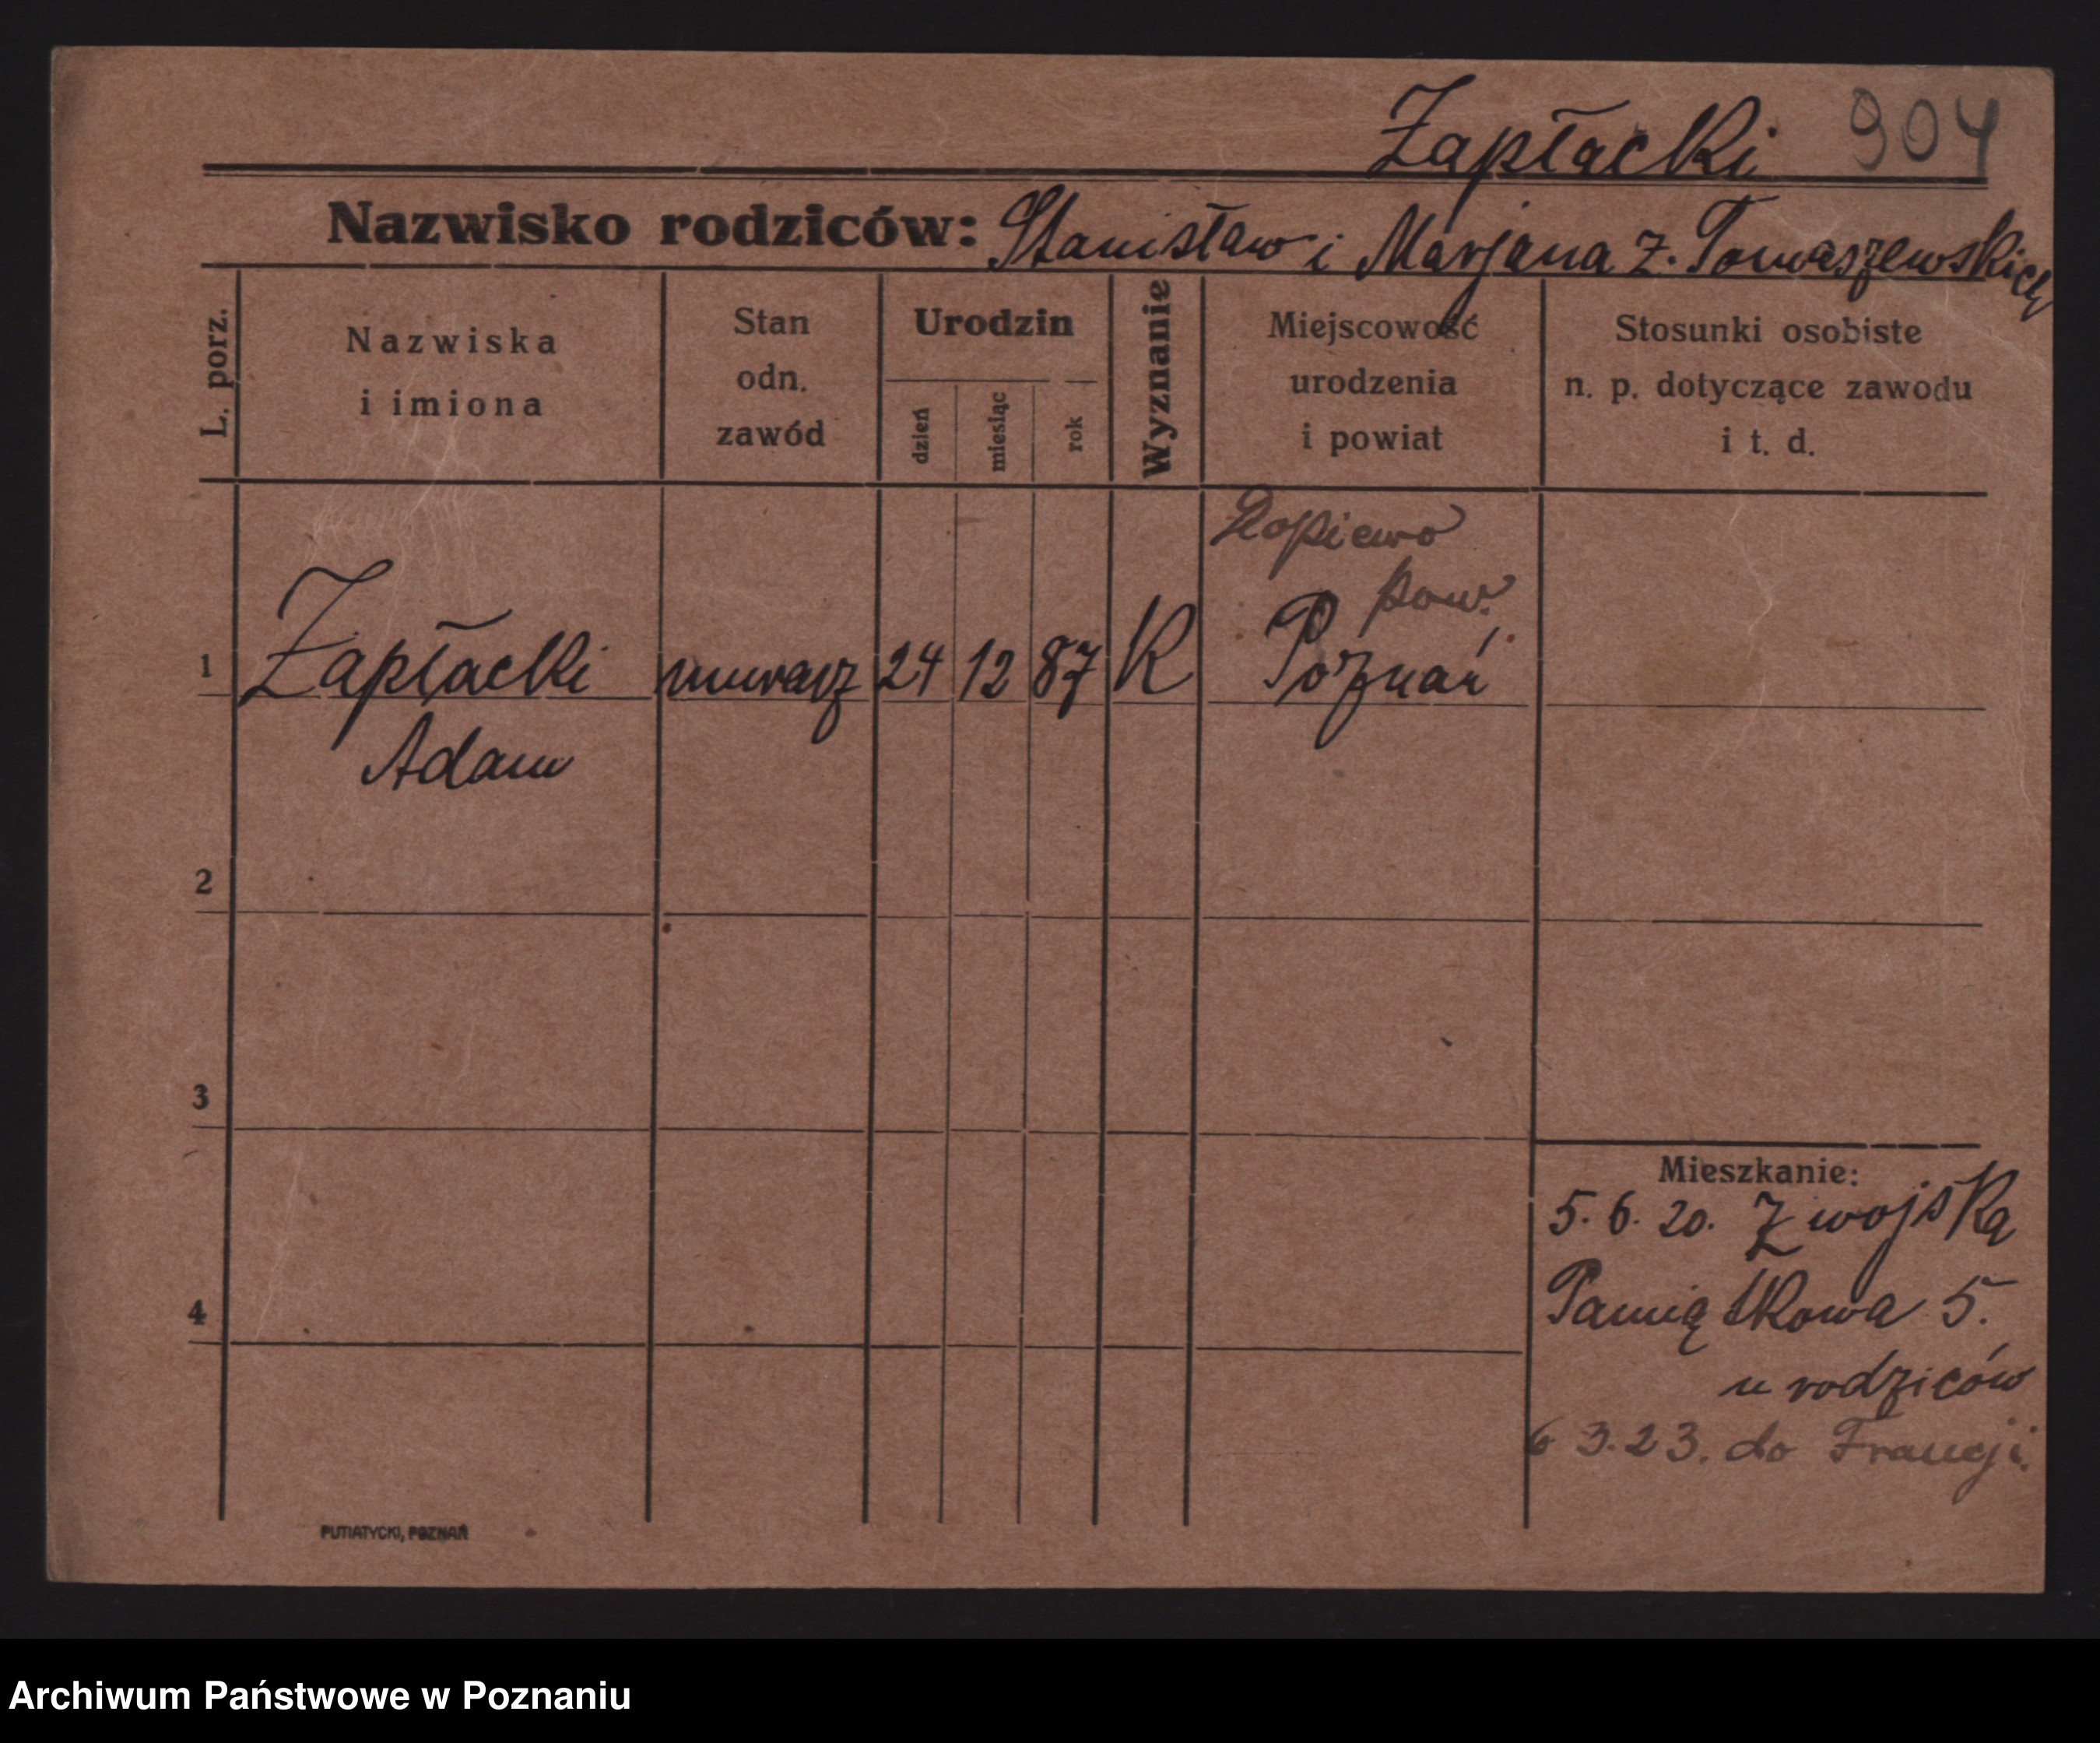 Zapłacki 904
Nazwisko rodziców: Stanisław i Marjana z. Tomaszewskich
L. porz.
Nazwiska
i imiona
Stan
odn.
zawód
Urodzin
dzień
miesiąc
rok
Wyznanie
Miejscowość
urodzenia
i powiat
Stosunki osobiste
n. p. dotyczące zawodu
i t. d.
pow.
1 Zapłacki murarz 24 12 87 K Poznań
Adam
2
3
4
Mieszkanie:
5. 6. 20. Z wojska
Pamiątkowa 5.
u rodziców
6 3. 23. do Francji.
PUTIATYCKI, POZNAŃ
Archiwum Państwowe w Poznaniu